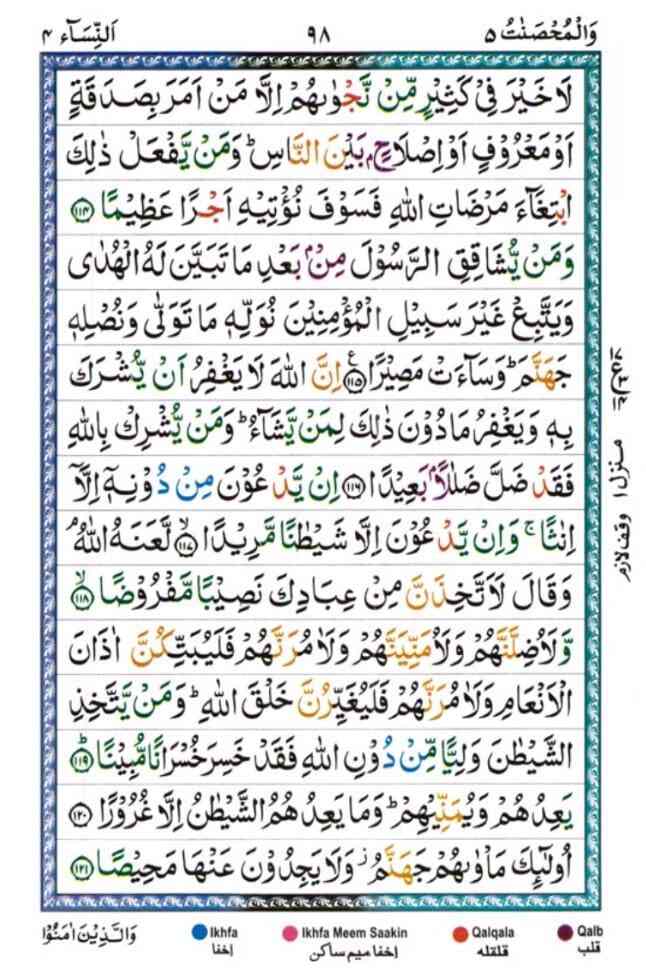 وَالْمُحْصَنٰتُ ۵ ٩٨ اَلنِّسَآء ۴
لَا خَيْرَ فِيْ كَثِيْرٍ مِّنْ نَّجْوٰىهُمْ اِلَّا مَنْ اَمَرَ بِصَدَقَةٍ
اَوْ مَعْرُوْفٍ اَوْ اِصْلَاحٍۭ بَيْنَ النَّاسِ ؕ وَمَنْ يَّفْعَلْ ذٰلِكَ
ابْتِغَآءَ مَرْضَاتِ اللّٰهِ فَسَوْفَ نُؤْتِيْهِ اَجْرًا عَظِيْمًا ﴿۱۱۴﴾
وَمَنْ يُّشَاقِقِ الرَّسُوْلَ مِنْۢ بَعْدِ مَا تَبَيَّنَ لَهُ الْهُدٰى
وَيَتَّبِعْ غَيْرَ سَبِيْلِ الْمُؤْمِنِيْنَ نُوَلِّهٖ مَا تَوَلّٰى وَنُصْلِهٖ
جَهَنَّمَ ؕ وَسَآءَتْ مَصِيْرًا ﴿۱۱۵﴾ اِنَّ اللّٰهَ لَا يَغْفِرُ اَنْ يُّشْرَكَ
بِهٖ وَيَغْفِرُ مَا دُوْنَ ذٰلِكَ لِمَنْ يَّشَآءُ ؕ وَمَنْ يُّشْرِكْ بِاللّٰهِ
فَقَدْ ضَلَّ ضَلٰلًاۢ بَعِيْدًا ﴿۱۱۶﴾ اِنْ يَّدْعُوْنَ مِنْ دُوْنِهٖۤ اِلَّاۤ
اِنٰثًا ۚ وَاِنْ يَّدْعُوْنَ اِلَّا شَيْطٰنًا مَّرِيْدًا ﴿۱۱۷﴾ لَّعَنَهُ اللّٰهُ ۘ
وَقَالَ لَاَتَّخِذَنَّ مِنْ عِبَادِكَ نَصِيْبًا مَّفْرُوْضًا ﴿۱۱۸﴾
وَّلَاُضِلَّنَّهُمْ وَلَاُمَنِّيَنَّهُمْ وَلَاٰمُرَنَّهُمْ فَلَيُبَتِّكُنَّ اٰذَانَ
الْاَنْعَامِ وَلَاٰمُرَنَّهُمْ فَلَيُغَيِّرُنَّ خَلْقَ اللّٰهِ ؕ وَمَنْ يَّتَّخِذِ
الشَّيْطٰنَ وَلِيًّا مِّنْ دُوْنِ اللّٰهِ فَقَدْ خَسِرَ خُسْرَانًا مُّبِيْنًا ﴿۱۱۹﴾
يَعِدُهُمْ وَيُمَنِّيْهِمْ ؕ وَمَا يَعِدُهُمُ الشَّيْطٰنُ اِلَّا غُرُوْرًا ﴿۱۲۰﴾
اُولٰٓئِكَ مَاْوٰىهُمْ جَهَنَّمُ ؗ وَلَا يَجِدُوْنَ عَنْهَا مَحِيْصًا ﴿۱۲۱﴾
منزل ۱
وقف لازم
وَالَّذِيْنَ اٰمَنُوْا
Ikhfa Ikhfa Meem Saakin Qalqala Qalb
اخفا اخفا ميم ساكن قلقله قلب